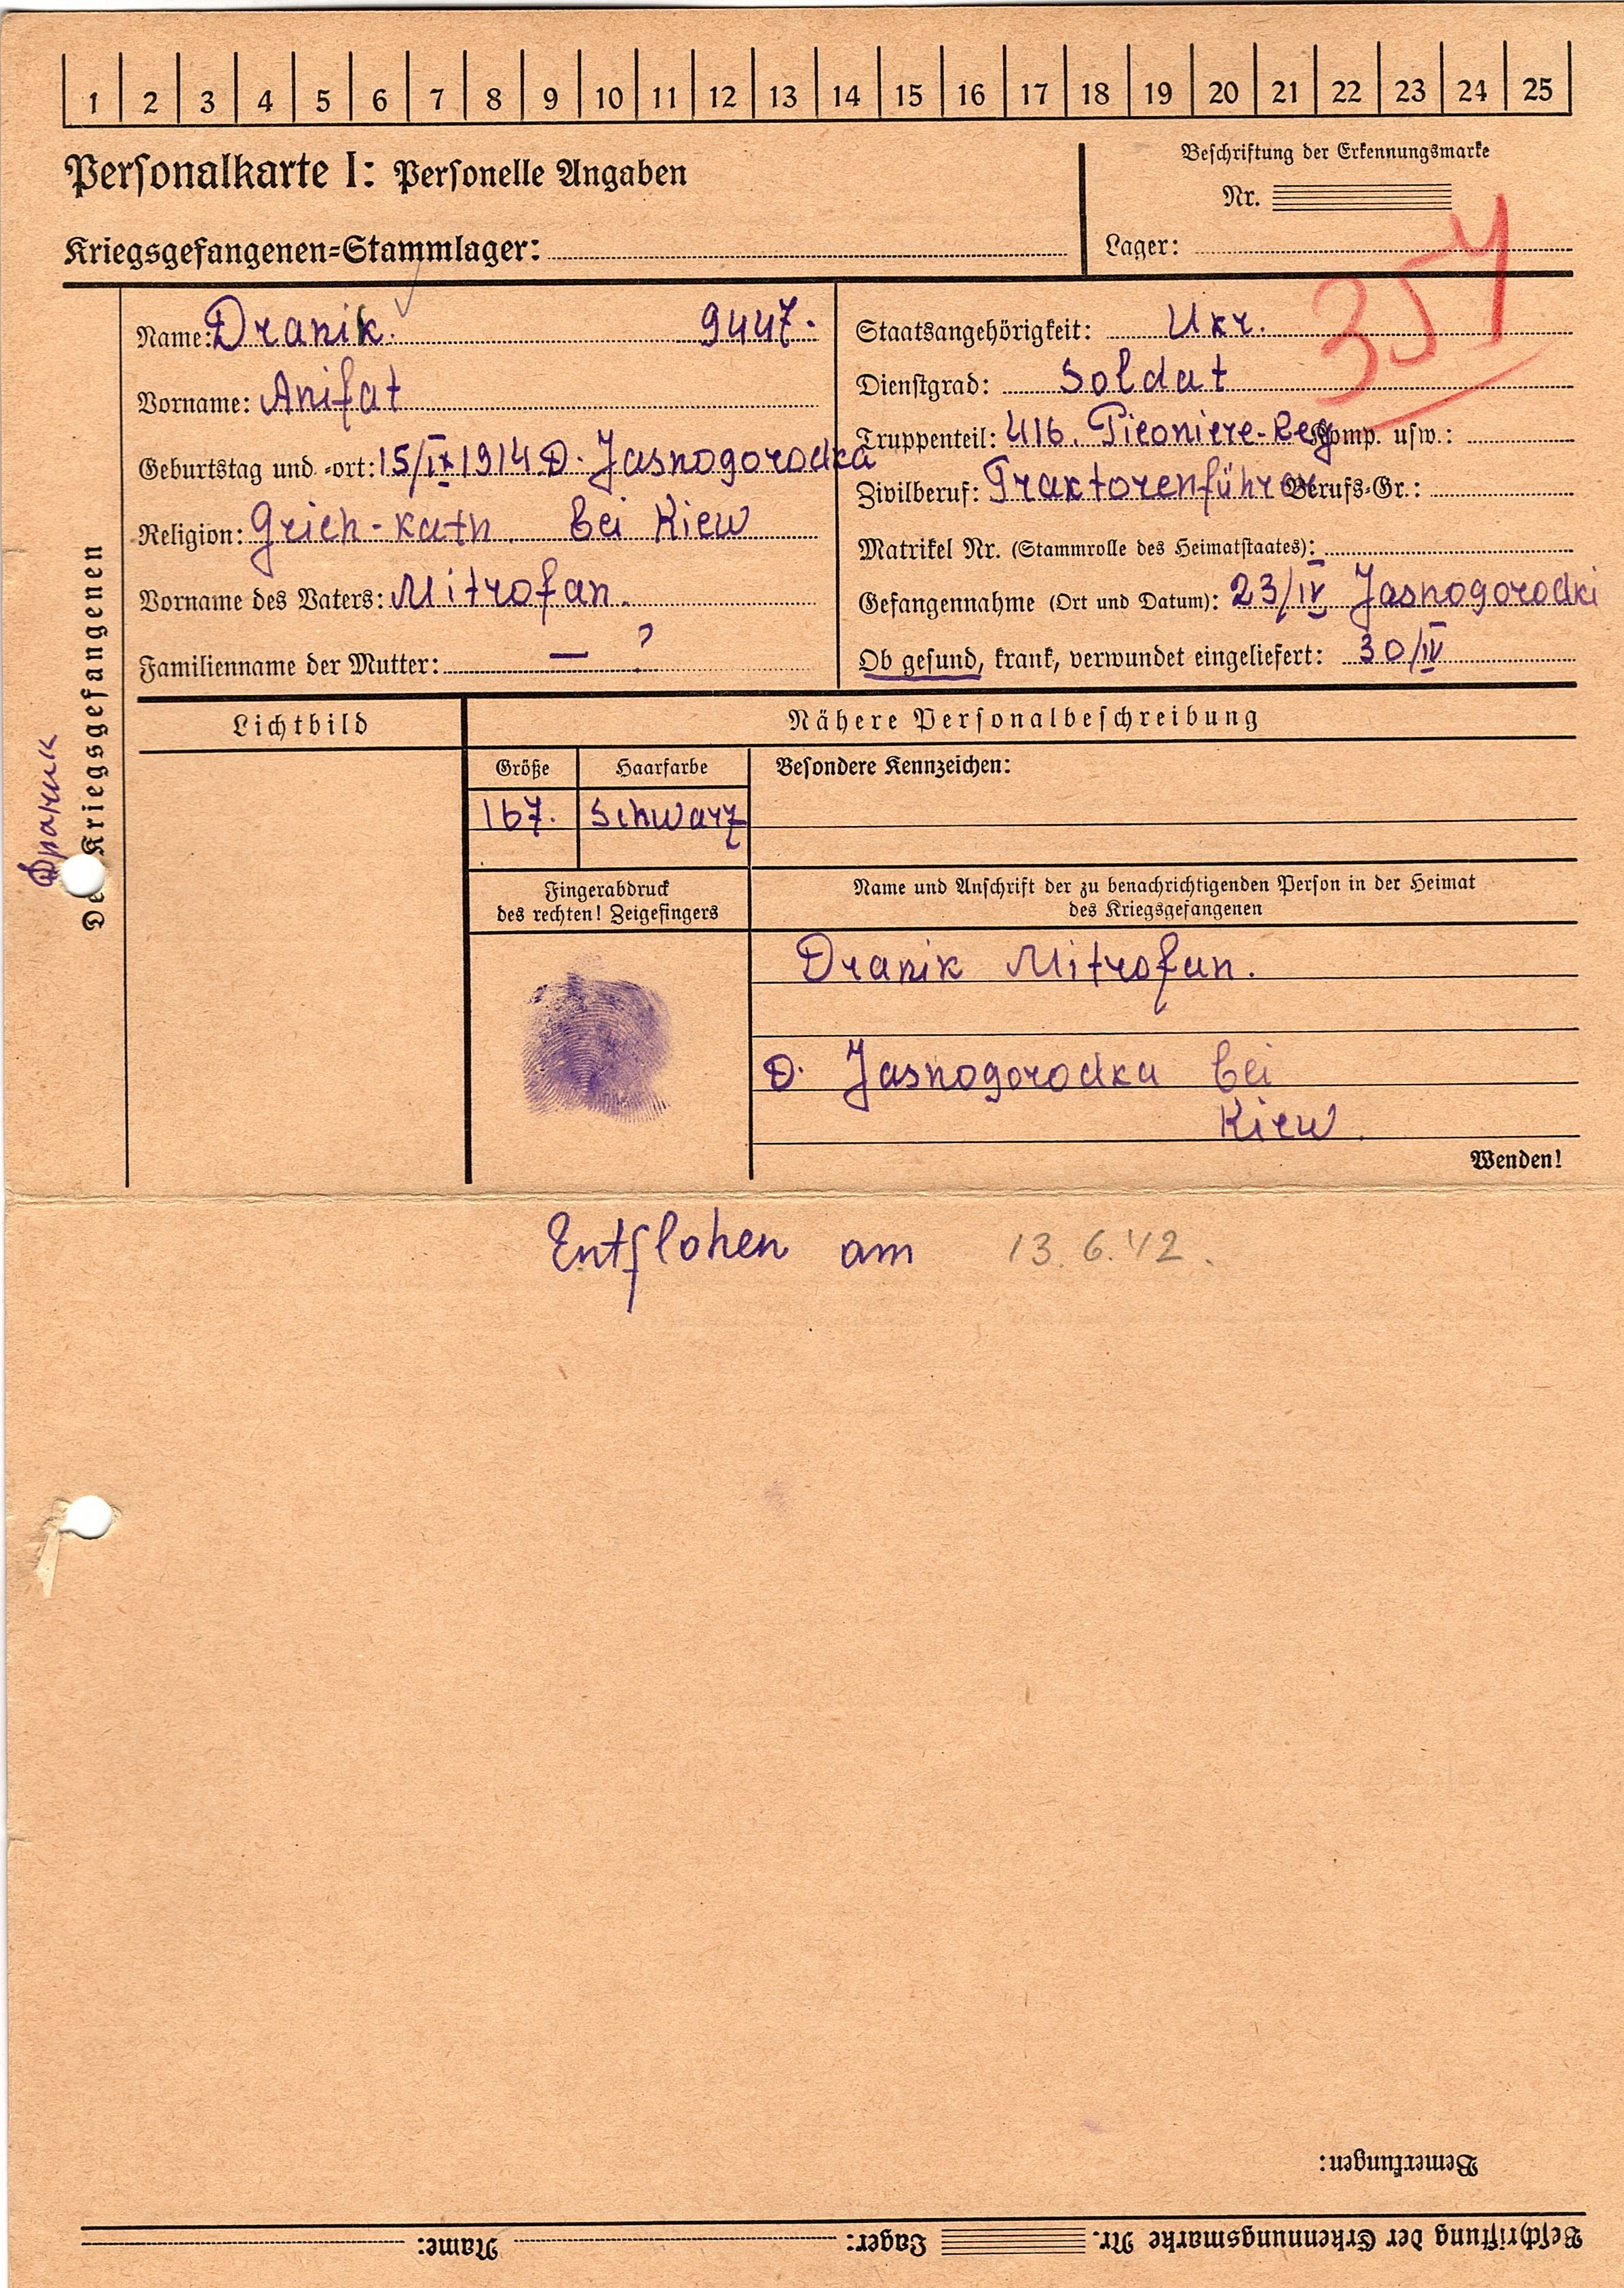 1 2 3 4 5 6 7 8 9 10 11 12 13 14 15 16 17 18 19 20 21 22 23 24 25
Personalkarte I: Personelle Angaben
Beschriftung der Erkennungsmarke
Nr.
Kriegsgefangenen-Stammlager:
Lager:
357
Des Kriegsgefangenen
Драник
Name: Dranik. 9447.
Vorname: Anifat
Geburtstag und -ort: 15/IX 1914 D. Jasnogorodka
Religion: Grich-kath. bei Kiew
Vorname des Vaters: Mitrofan.
Familienname der Mutter: — ?
Staatsangehörigkeit: Ukr.
Dienstgrad: Soldat
Truppenteil: 416. Pieoniere-Reg Komp. usw.:
Zivilberuf: Traktorenführer Berufs-Gr.:
Matrikel Nr. (Stammrolle des Heimatstaates):
Gefangennahme (Ort und Datum): 23/IV Jasnogorodki
Ob gesund, krank, verwundet eingeliefert: 30/IV
Lichtbild
Nähere Personalbeschreibung
Größe
Haarfarbe
Besondere Kennzeichen:
167.
Schwarz
Fingerabdruck
des rechten! Zeigefingers
Name und Anschrift der zu benachrichtigenden Person in der Heimat
des Kriegsgefangenen
Dranik Mitrofan.
D. Jasnogorodka bei
Kiew.
Wenden!
Entflohen am 13.6.42.
Bemerkungen:
Beschriftung der Erkennungsmarke Nr. Lager: Name: